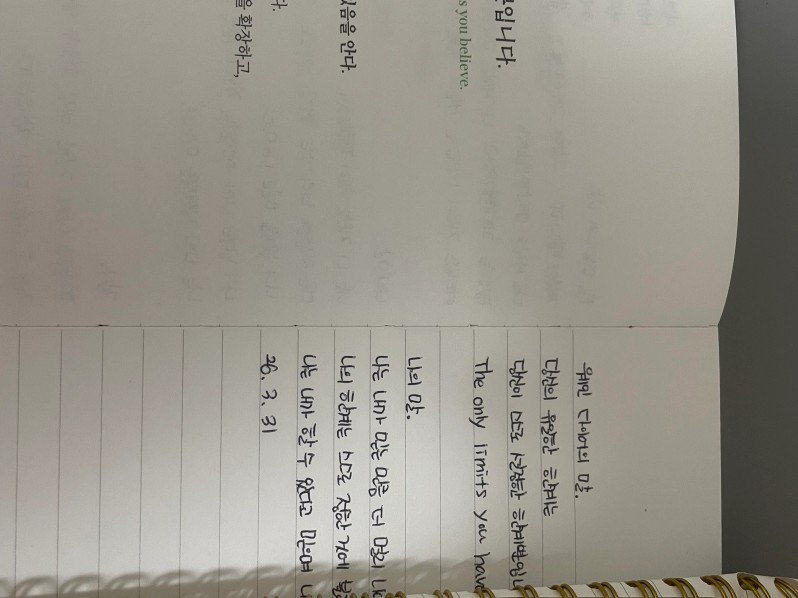 입니다.
s you believe.
있음을 안다.
다.
을 확장하고,
웨인 다이어의 말.
당신의 유일한 한계는
당신이 믿고 선택한 한계뿐입니
The only limits you have
나의 말.
나는 내가 믿는 만큼 더 멀리
나의 한계는 믿고 정한 것에
나는 내가 할 수 있다고 믿으며 나
26. 3. 31